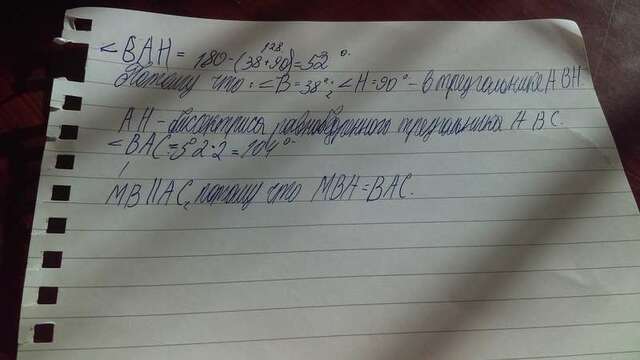 128
∠BAH = 180-(38+90)=52°.
Потому что: ∠B=38°; ∠H=90° - в треугольнике ABH
AH - биссектриса равнобедренного треугольника ABC.
∠BAC=52·2=104°
MB||AC, потому что MBH=BAC.